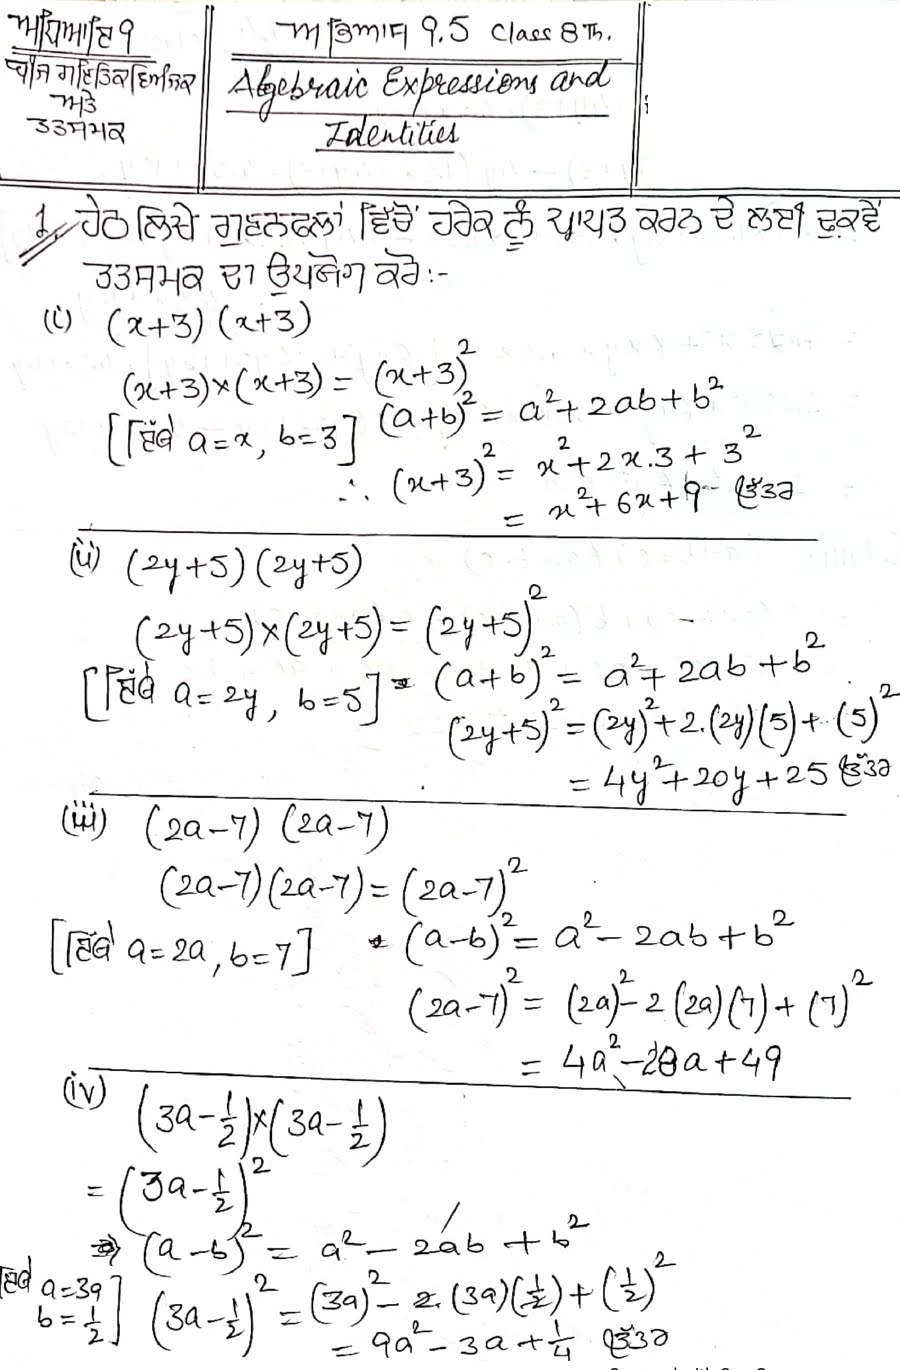 ਅਧਿਆਇ 9
ਬੀਜ ਗਣਿਤਿਕ ਵਿਅੰਜਕ
ਅਤੇ
ਤਤਸਮਕ
ਅਭਿਆਸ 9.5 Class 8Th.
Algebraic Expressions and
Identities
1. ਹੇਠ ਲਿਖੇ ਗੁਣਨਫਲਾਂ ਵਿੱਚੋਂ ਹਰੇਕ ਨੂੰ ਪ੍ਰਾਪਤ ਕਰਨ ਦੇ ਲਈ ਢੁਕਵੇਂ
ਤਤਸਮਕ ਦਾ ਉਪਯੋਗ ਕਰੋ:-
(i) (x+3) (x+3)
(x+3)×(x+3) = (x+3)²
[ਇੱਥੇ a=x, b=3] (a+b)² = a²+2ab+b²
∴ (x+3)² = x²+2x.3+3²
= x²+6x+9 ਉੱਤਰ
(ii) (2y+5) (2y+5)
(2y+5)×(2y+5) = (2y+5)²
[ਇੱਥੇ a=2y, b=5] (a+b)² = a²+2ab+b²
(2y+5)² = (2y)²+2.(2y)(5)+(5)²
= 4y²+20y+25 ਉੱਤਰ
(iii) (2a-7) (2a-7)
(2a-7)(2a-7) = (2a-7)²
[ਇੱਥੇ a=2a, b=7] (a-b)² = a²-2ab+b²
(2a-7)² = (2a)²-2(2a)(7)+(7)²
= 4a²-28a+49
(iv) (3a-1/2)×(3a-1/2)
= (3a-1/2)²
⇒ (a-b)² = a²-2ab+b²
ਇੱਥੇ a=3a
b=1/2] (3a-1/2)² = (3a)²-2.(3a)(1/2)+(1/2)²
= 9a²-3a+1/4 ਉੱਤਰ